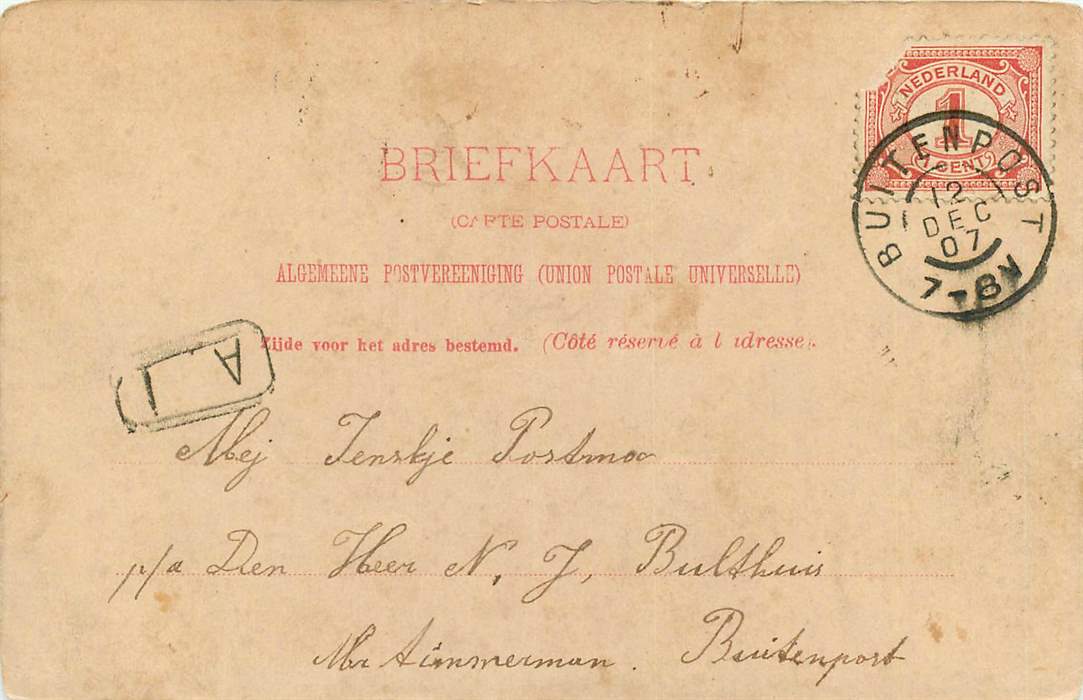 BRIEFKAART
(CARTE POSTALE)
ALGEMEENE POSTVEREENIGING (UNION POSTALE UNIVERSELLE)
Zijde voor het adres bestemd. (Côté réservé à l'adresse).
NEDERLAND
1
1 CENT
BUITENPOST
12
DEC
07
7-8N
A I
Mej Jenskje Postma
p/a Den Heer N. J. Bulthuis
Mr timmerman. Buitenpost